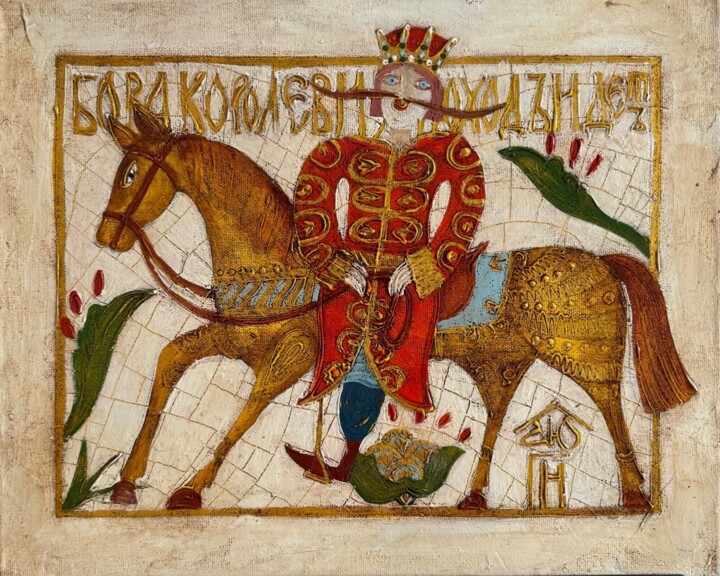 БОВА КОРОЛЕВИЧ ПОХОДЪ НДЕТЪ